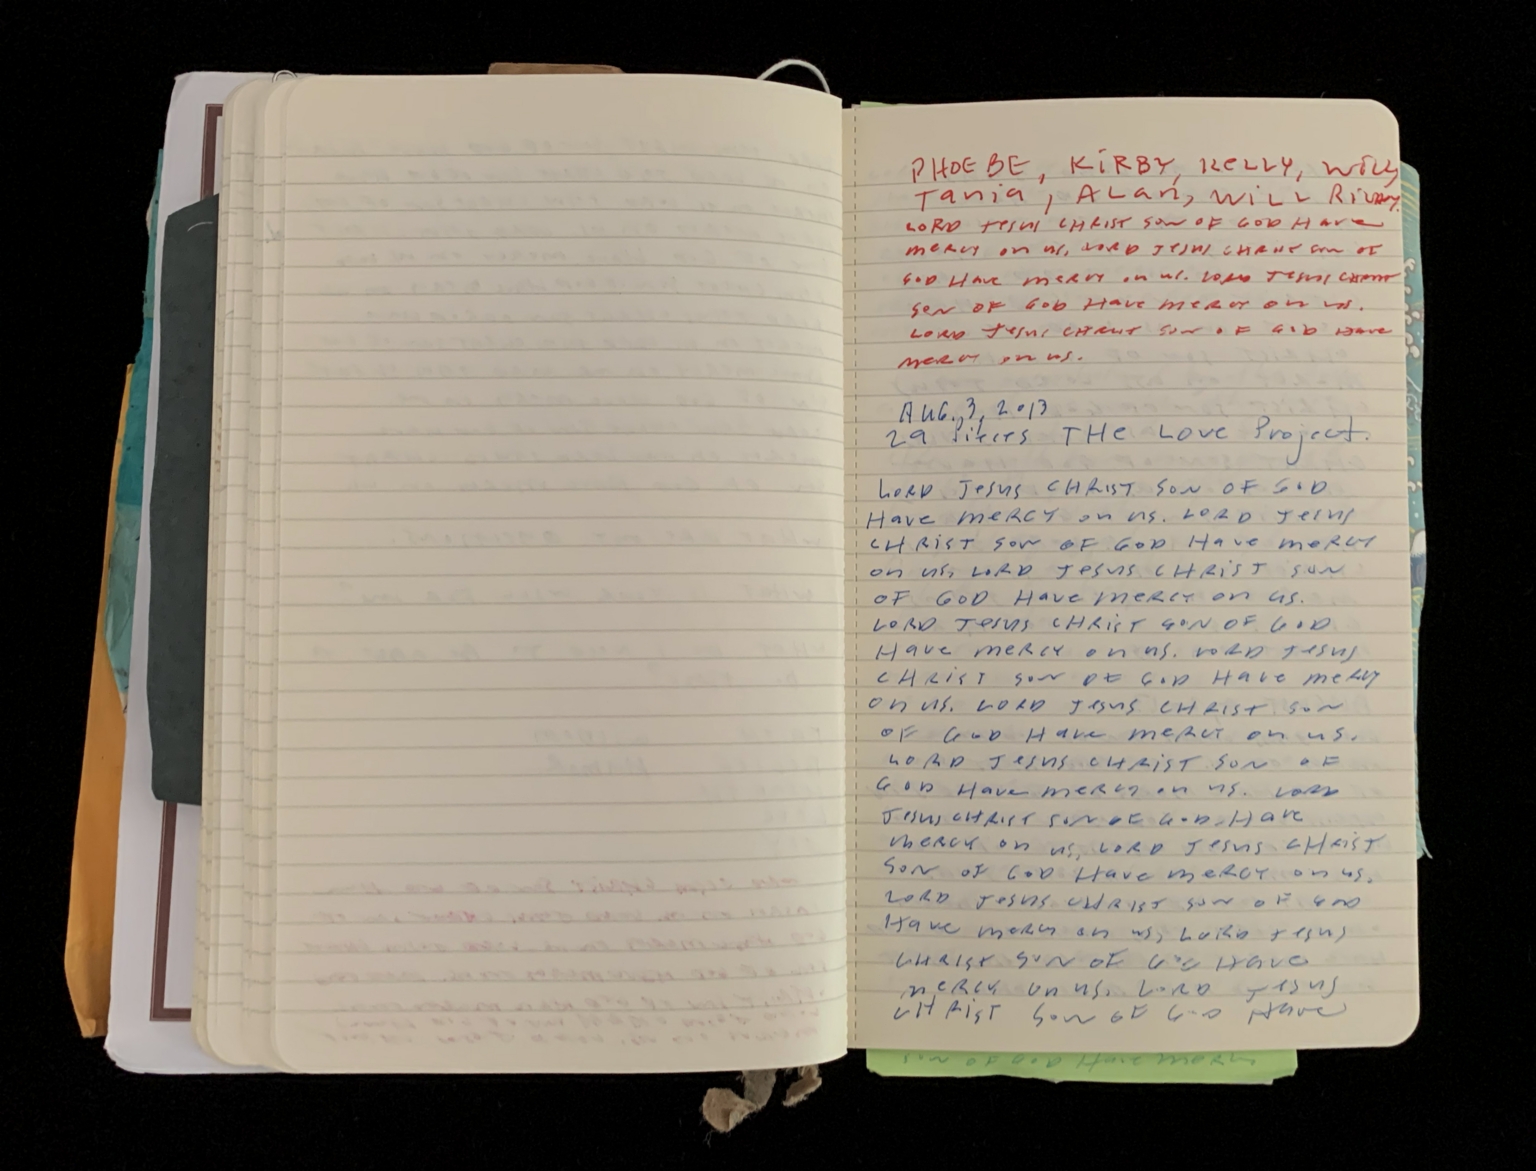 PHOEBE, KiRBY, KELLY, WiLL,
Tania, ALan, WILL
LORD Jesus CHRIST Son OF GOD Have
mercy on us, LORD Jesus CHRIST Son OF
GOD Have mercy on us. LORD Jesus CHRIST
Son OF GOD Have mercy on us.
LORD Jesus CHRIST Son OF GOD Have
mercy on us.
AUG. 3, 2013
29 Pieces THe Love Project.
LORD Jesus CHRIST Son OF GOD
Have mercy on us. LORD Jesus
CHRIST Son OF GOD Have mercy
on us, LORD Jesus CHRiST Son
OF GOD Have mercy on us.
LORD Jesus CHRiST Son OF GOD
Have mercy on us. LORD Jesus
CHRIST Son OF GOD Have mercy
on us. LORD Jesus CHRIST Son
OF GOD Have mercy on us.
LORD Jesus CHRIST Son OF
GOD Have mercy on us. LORD
Jesus CHRIST Son OF GOD. Have
mercy on us, LORD Jesus CHRiST
Son OF GOD Have mercy on us.
LORD Jesus CHRIST Son OF GOD
Have mercy on us, LORD Jesus
CHRIST Son OF GOD Have
mercy on us. LORD Jesus
CHRIST Son OF GOD Have
Son OF GOD Have mercy